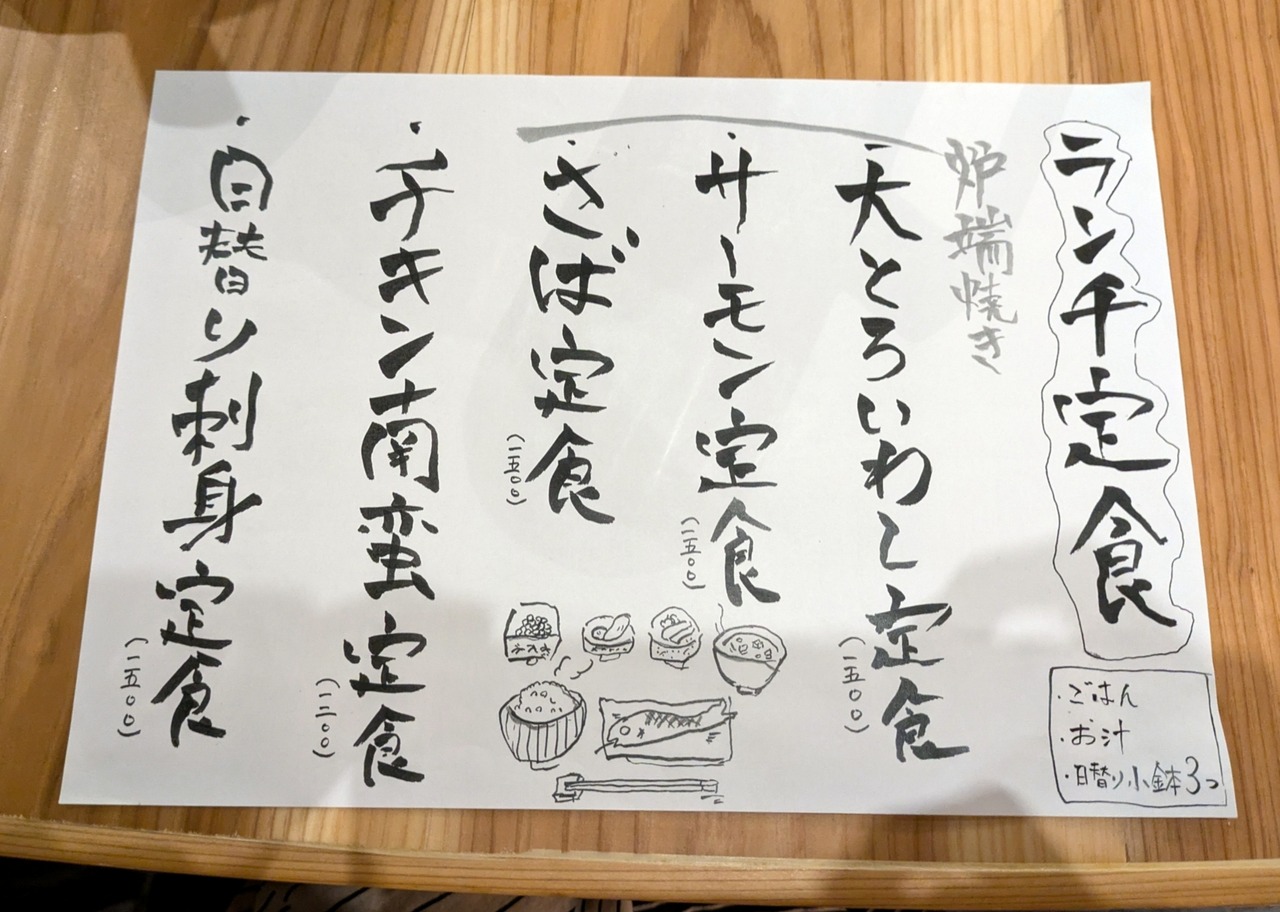 ランチ定食
・ごはん
・お汁
・日替り小鉢3つ
炉端焼き
・大とろいわし定食
(一五〇〇)
・サーモン定食
(一五〇〇)
・さば定食
(一五〇〇)
・チキン南蛮定食
(一二〇〇)
・日替り刺身定食
(一五〇〇)